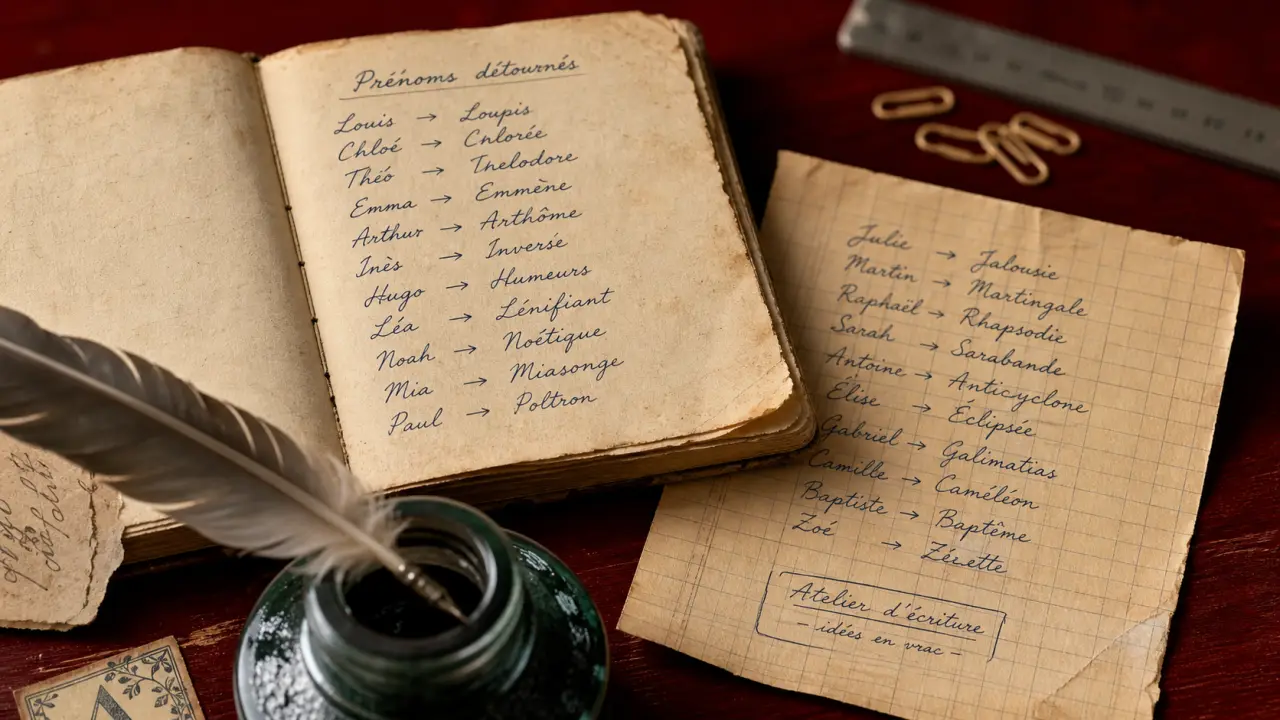 Prénoms détournés
Louis → Loupis
Chloé → Chlorée
Théo → Thelodore
Emma → Emmène
Arthur → Arthôme
Inès → Inversé
Hugo → Humeurs
Léa → Lénifiant
Noah → Noétique
Mia → Miasonge
Paul → Poltron
Julie → Jalousie
Martin → Martingale
Raphaël → Rhapsodie
Sarah → Sarabande
Antoine → Anticyclone
Élise → Éclipsée
Gabriel → Galimatias
Camille → Caméléon
Baptiste → Baptême
Zoé →
Atelier d'écriture
– idées en vrac –